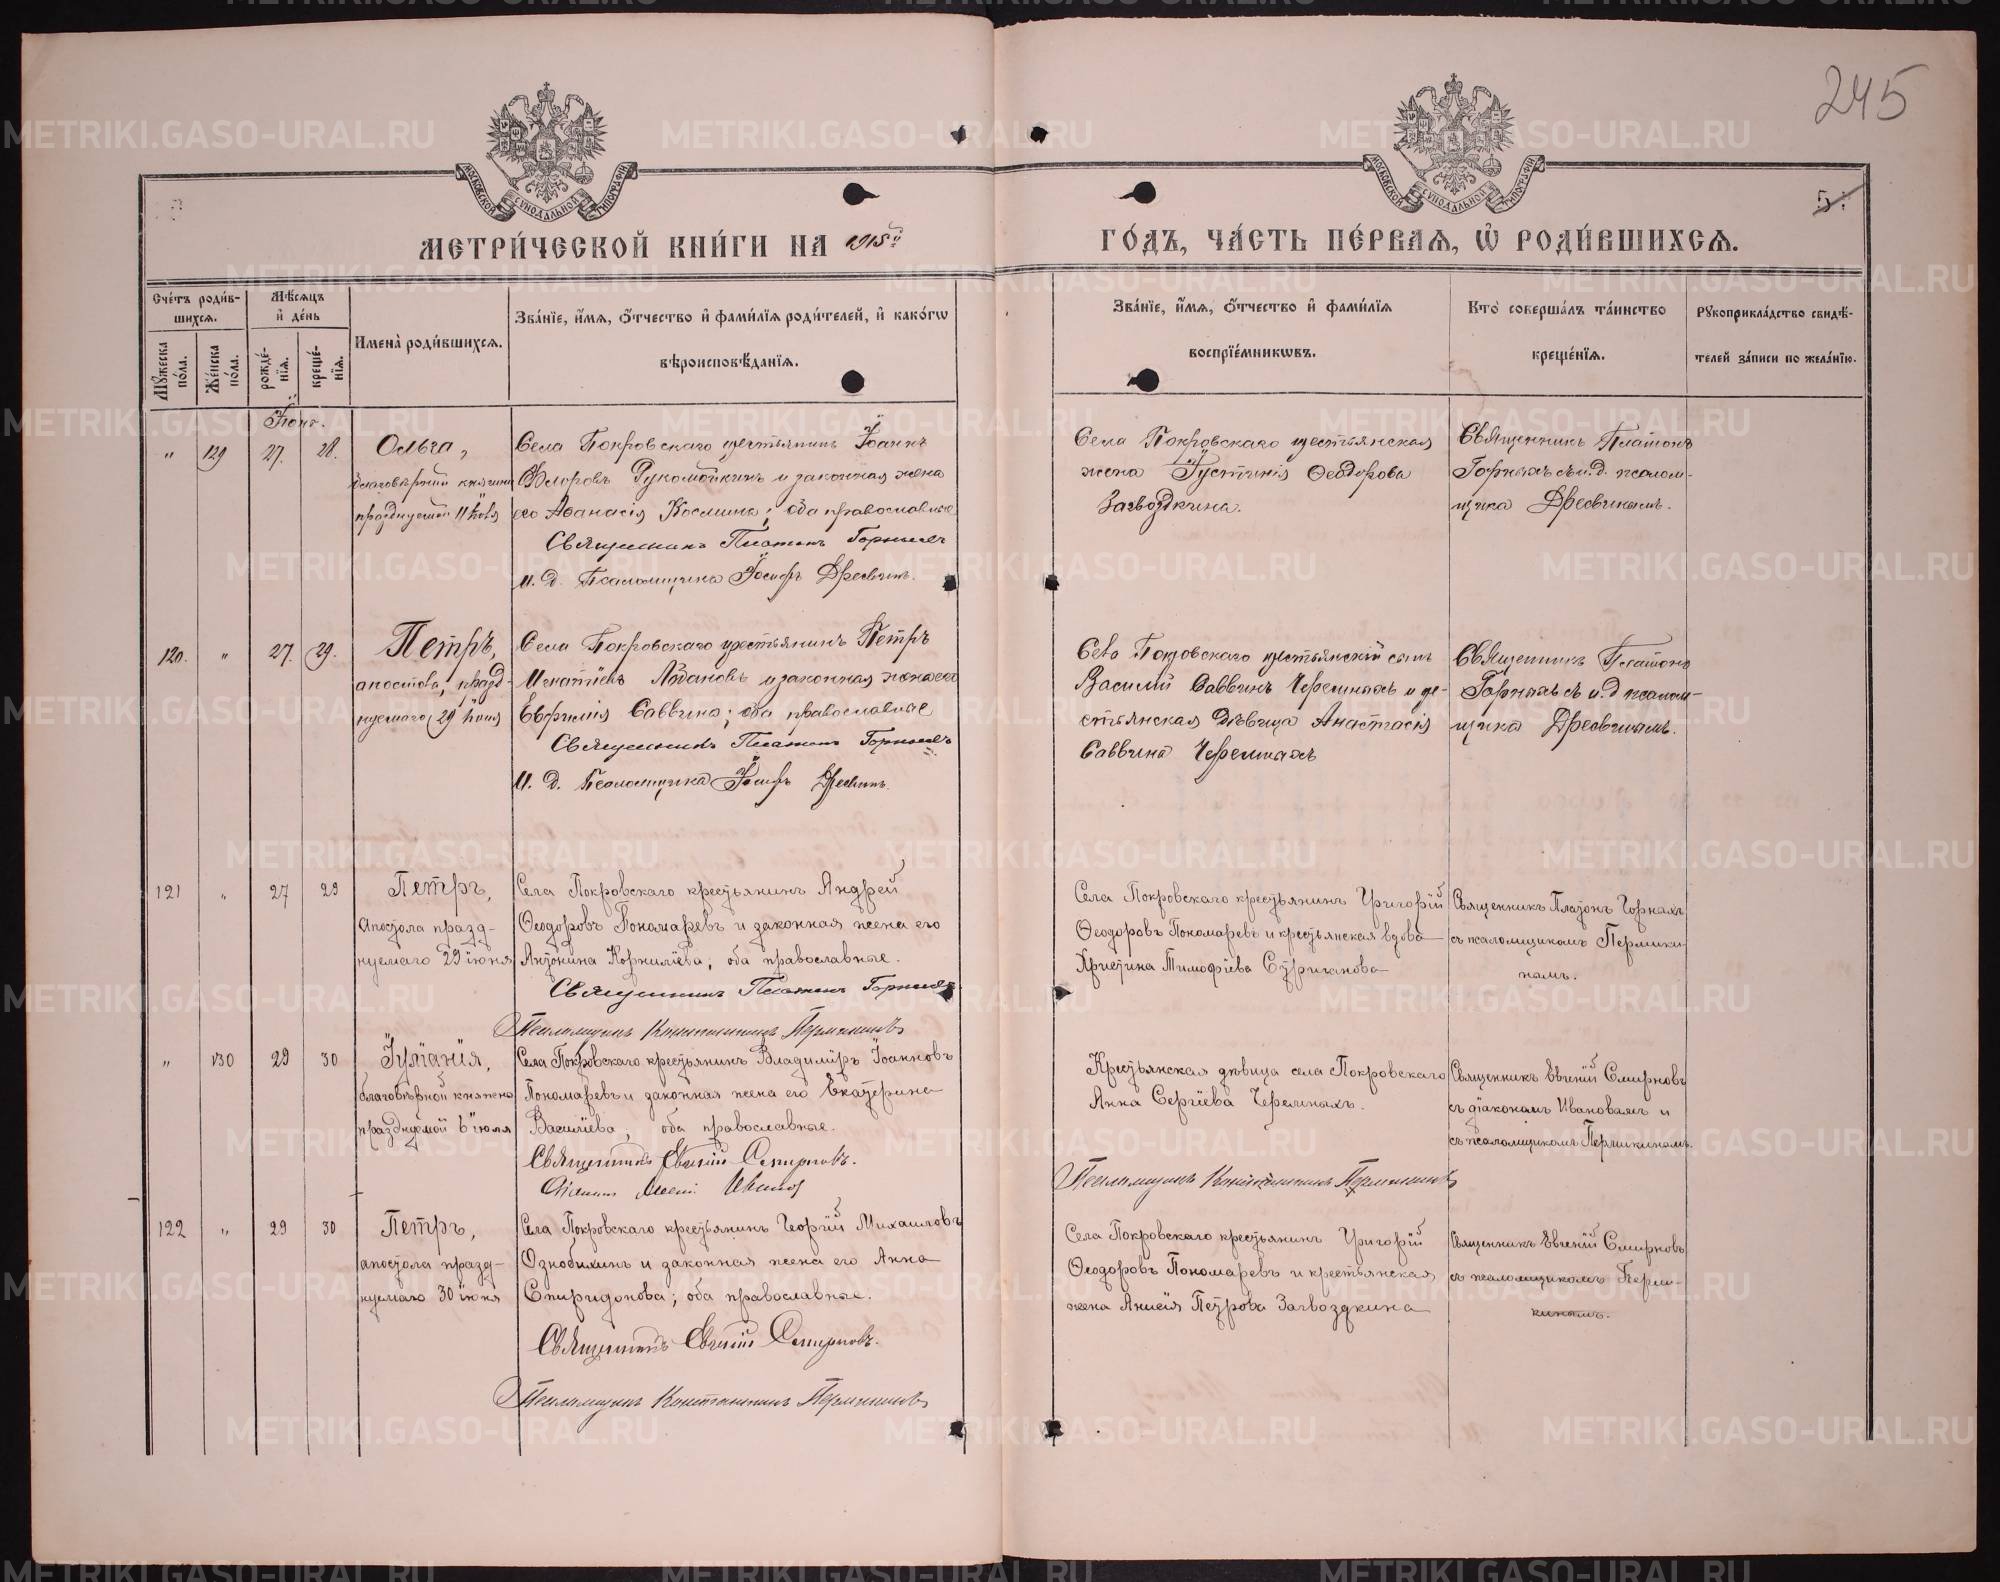 245
МОСКОВСКОЙ СУНОДАЛЬНОЙ ТИПОГРАФІИ
МОСКОВСКОЙ СУНОДАЛЬНОЙ ТИПОГРАФІИ
МЕТРИ́ЧЕСКОЙ КНИ́ГИ НА 1915й
ГО́ДЪ, ЧА́СТЬ ПЕ́РВАѦ, Ѡ҆ РОДИ́ВШИХСѦ.
Сче́тъ роди́в-
шихсѧ.
Мꙋ́жеска по́ла.
Же́нска по́ла.
Мѣ́сѧцъ
и҆ де́нь
рожде́-
нїѧ.
креще́-
нїѧ.
Имена̀ роди́вшихсѧ.
Зва́нїе, и҆́мѧ, ѻ҆́тчество и҆ фами́лїѧ роди́телей, и҆ како́гѡ
вѣроисповѣ́данїѧ.
Зва́нїе, и҆́мѧ, ѻ҆́тчество и҆ фами́лїѧ
воспрїе́мникѡвъ.
Кто̀ соверша́лъ та́инство
креще́нїѧ.
Рꙋкоприкла́дство свидѣ́-
телей за́писи по жела́нїю.
Іюнь.
" 129 27. 28.
Ольга,
благовѣрной княгини
празднуемой 11 Іюля
Села Покровскаго крестьянинъ Іоаннъ
Ѳедоровъ Рукомойкинъ и законная жена
его Аѳанасія Космина; оба православные
Священникъ Платонъ Горныхъ
И. д. Псаломщика Іосифъ Дресвинъ.
Села Покровскаго крестьянская
жена Іустинія Ѳеодорова
Загвоздкина.
Священникъ Платонъ
Горныхъ съ и. д. псалом-
щика Дресвинымъ.
120. " 27. 29.
Петръ,
апостола, празд-
нуемаго 29 Іюня
Села Покровскаго крестьянинъ Петръ
Игнатіевъ Лобановъ и законная жена его
Евфимія Саввина; оба православные
Священникъ Платонъ Горныхъ
И. д. Псаломщика Іосифъ Дресвинъ.
Села Покровскаго крестьянскій сынъ
Василій Саввинъ Черемныхъ и кре-
стьянская дѣвица Анастасія
Саввина Черемныхъ
Священникъ Платонъ
Горныхъ съ и. д псалом-
щика Дресвинымъ.
121 " 27 29
Петръ,
Апостола празд-
нуемаго 29 іюня
Села Покровскаго крестьянинъ Андрей
Ѳеодоровъ Пономаревъ и законная жена его
Антонина Корнилiева; оба православные.
Священникъ Платонъ Горныхъ
Псаломщикъ Константинъ Перминкинъ
Села Покровскаго крестьянинъ Григорій
Ѳеодоровъ Пономаревъ и крестьянская вдова
Христина Тимофіева Стриганова
Священникъ Платонъ Горныхъ
съ псаломщикомъ Перміки-
нымъ.
" 130 29 30
Іуліанія,
благовѣрной княжны
празднуемой 6 іюля
Села Покровскаго крестьянинъ Владиміръ Іоанновъ
Пономаревъ и законная жена его Екатерина
Василіева; оба православные.
Священникъ Евгеній Смирновъ.
Діаконъ Ивановъ
Крестьянская дѣвица села Покровскаго
Анна Сергіева Черемныхъ.
Псаломщикъ Константинъ Перминкинъ
Священникъ Евгеній Смирновъ
съ діакономъ Ивановымъ и
съ псаломщикомъ Пермикинымъ.
122 " 29 30
Петръ,
апостола празд-
нуемаго 30 іюня
Села Покровскаго крестьянинъ Георгій Михаиловъ
Ознобихинъ и законная жена его Анна
Спиридонова; оба православные.
Священникъ Евгеній Смирновъ.
Псаломщикъ Константинъ Перминкинъ
Села Покровскаго крестьянинъ Григорій
Ѳеодоровъ Пономаревъ и крестьянская
жена Анисія Петрова Загвоздкина
Священникъ Евгеній Смирновъ
съ псаломщикомъ Перми-
кинымъ.
METRIKI.GASO-URAL.RU